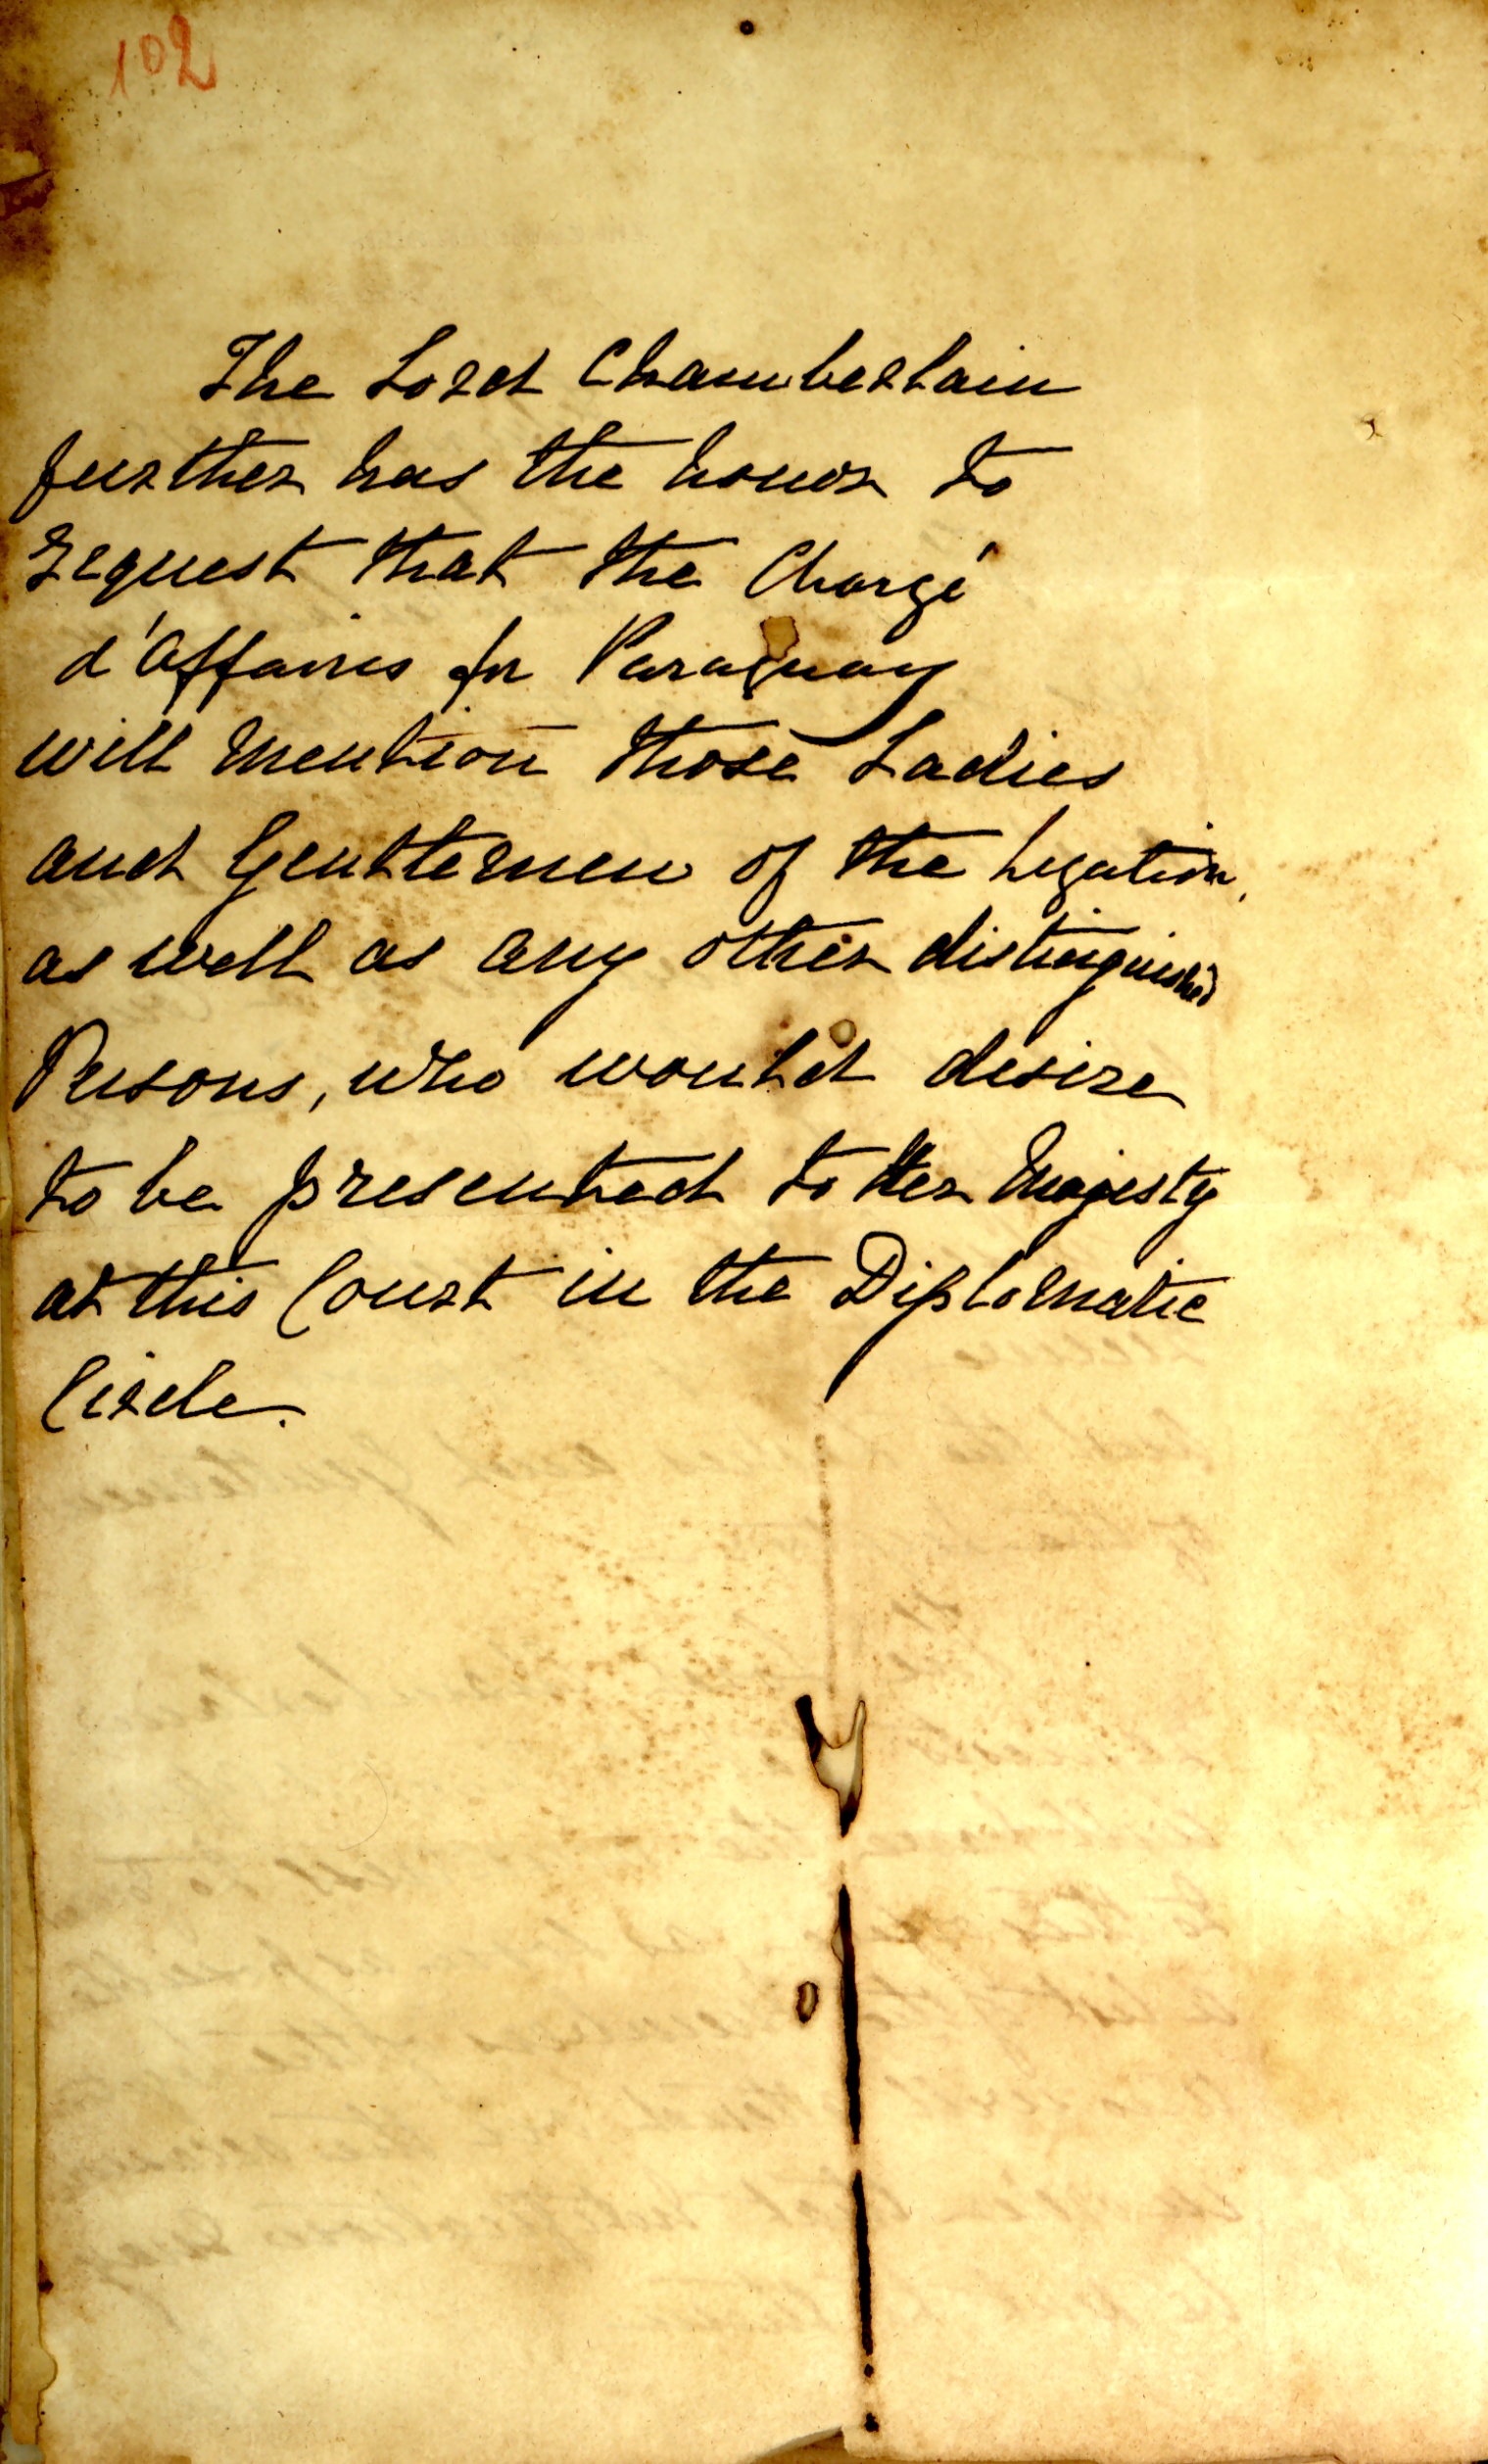 102
The Lord Chamberlain
further has the honor to
request that the Chargé
d'Affaires for Paraguay
will mention those Ladies
and Gentlemen of the Legation,
as well as any other distinguished
Persons, who would desire
to be presented to Her Majesty
at this Court in the Diplomatic
Circle.